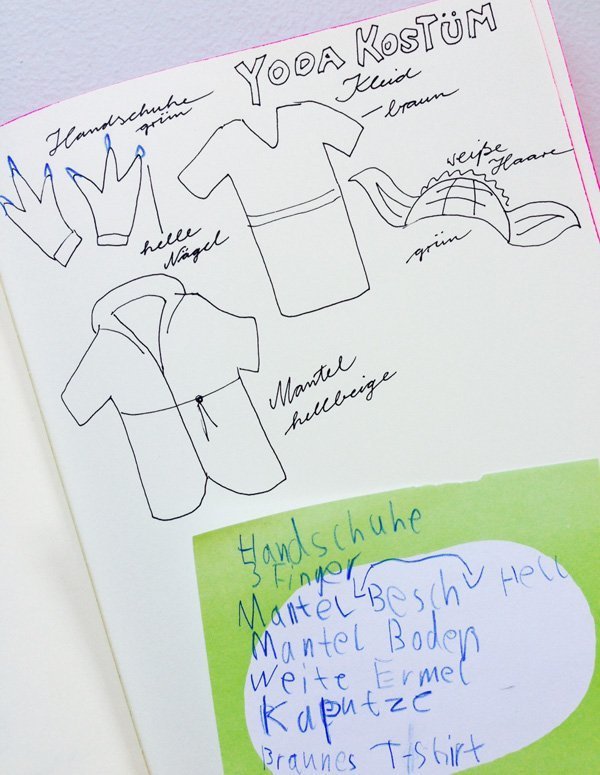 YODA KOSTÜM
Handschuhe
grün
Kleid
braun
weiße
Haare
helle
Nägel
grün
Mantel
hellbeige
Handschuhe
3 Finger
Mantel Besch Hell
Mantel Boden
Weite Ermel
Kaputze
Braunes T-Shirt